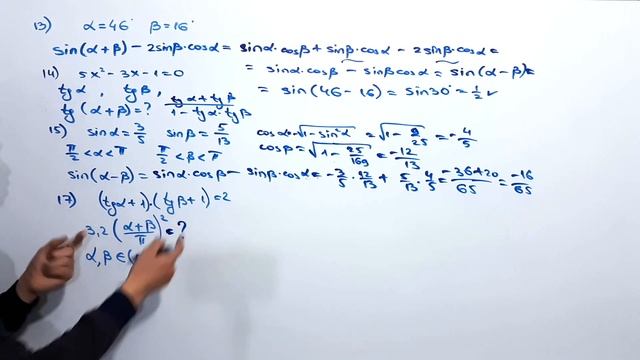 13) α=46° β=16°
sin(α+β) - 2sinβ·cosα = sinα·cosβ + sinβ·cosα - 2sinβ·cosα =
= sinα·cosβ - sinβcosα = sin(α-β) =
= sin(46-16) = sin30° = 1/2 ✓
14) 5x² - 3x - 1 = 0
tgα, tgβ,
tg(α+β) = ? (tgα+tgβ)/(1-tgα·tgβ)
15) sinα = 3/5 sinβ = 5/13 cosα = √(1-sin²α) = √(1-9/25) = -4/5
π/2<α<π π/2<β<π cosβ = √(1-25/169) = -12/13
sin(α-β) = sinα·cosβ - sinβ·cosα = -3/5·12/13 + 5/13·4/5 = (-36+20)/65 = -16/65
17) (tgα+1)·(tgβ+1) = 2
3,2((α+β)/π)² = ?
α,β ∈ (